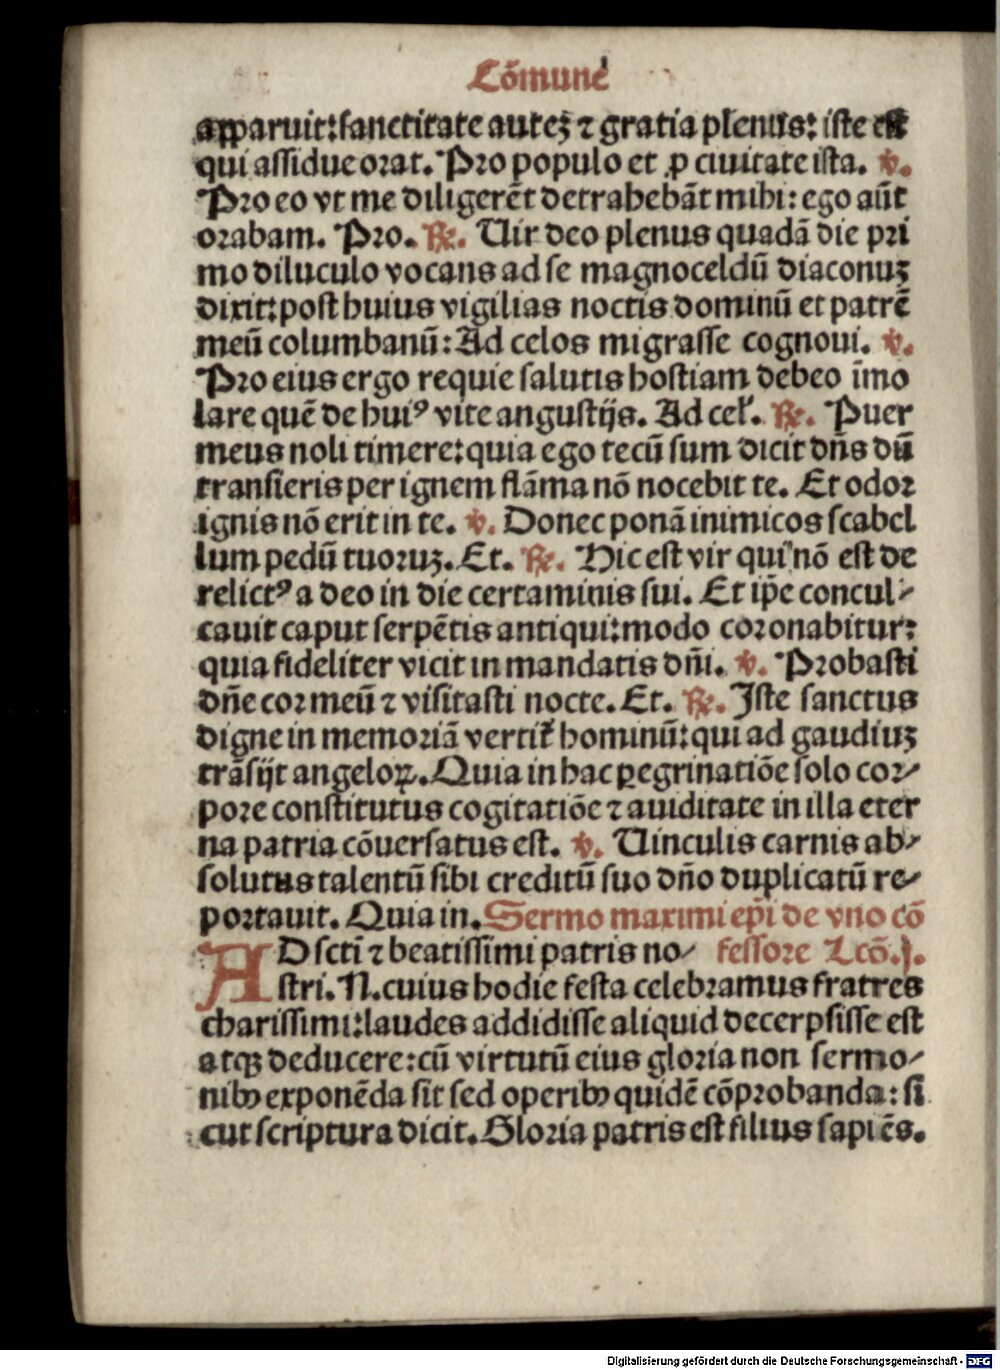 Cõmune
apparuit: sanctitate autez ⁊ gratia plenus: iste est
qui assidue orat. Pro populo et ꝓ ciuitate ista. ℣.
Pro eo vt me diligerẽt detrahebãt mihi: ego aũt
orabam. Pro. ℟. Uir deo plenus quadã die pri
mo diluculo vocans ad se magnoceldũ diaconuz
dixit: post huius vigilias noctis dominũ et patrẽ
meũ columbanũ: Ad celos migrasse cognoui. ℣.
Pro eius ergo requie salutis hostiam debeo ĩmo
lare quẽ de huiꝰ vite angustijs. Ad cel'. ℟. Puer
meus noli timere: quia ego tecũ sum dicit dñs dũ
transieris per ignem flãma nõ nocebit te. Et odor
ignis nõ erit in te. ℣. Donec ponã inimicos scabel
lum pedũ tuoruz. Et. ℟. Hic est vir qui nõ est de
relictꝰ a deo in die certaminis sui. Et ip̃e concul⸗
cauit caput serpẽtis antiqui: modo coronabitur:
quia fideliter vicit in mandatis dñi. ℣. Probasti
dñe cor meũ ⁊ visitasti nocte. Et. ℟. Iste sanctus
digne in memoriã vertit' hominũ: qui ad gaudiuz
trãsijt angeloꝝ. Quia in hac ꝑegrinatiõe solo cor⸗
pore constitutus cogitatiõe ⁊ auiditate in illa eter
na patria cõuersatus est. ℣. Uinculis carnis ab⸗
solutus talentũ sibi creditũ suo dño duplicatũ re⸗
portauit. Quia in. Sermo maximi ep̃i de vno cõ
AD sctĩ ⁊ beatissimi patris no⸗ fessore Lcõ.j.
stri. N. cuius hodie festa celebramus fratres
charissimi: laudes addidisse aliquid decerpsisse est
atqꝫ deducere: cũ virtutũ eius gloria non sermo⸗
nibꝰ exponẽda sit sed operibꝰ quidẽ cõprobanda: si
cut scriptura dicit. Gloria patris est filius sapiẽs.
Digitalisierung gefördert durch die Deutsche Forschungsgemeinschaft - DFG